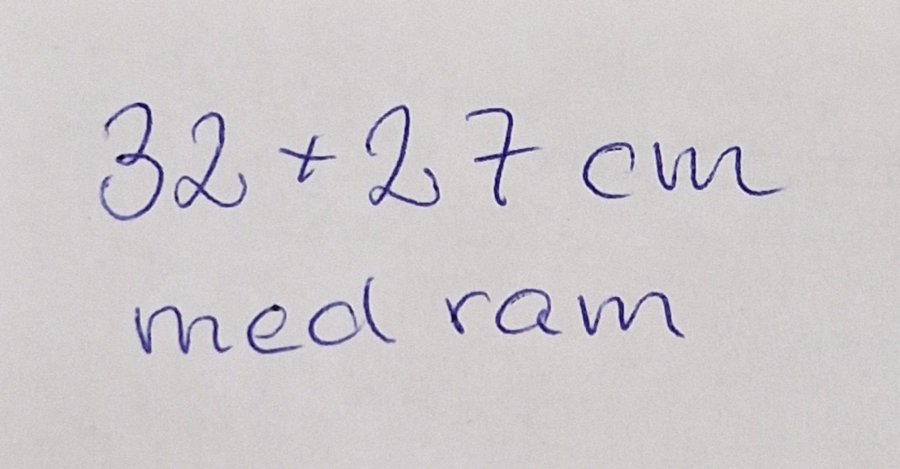 32+27 cm
med ram